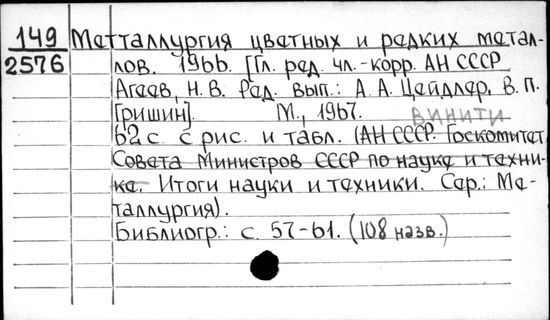 149 Метталлургия цветных и редких метал-
2576 лов. 1966. [Гл. ред. чл.-корр. АН СССР
Агеев, Н.В. Ред. вып.: А.А. Цейдлер, В.П.
Гришин]. М., 1967. ВИНИТИ
62 с. с рис. и табл. (АН СССР. Госкомитет
Совета Министров СССР по науке и техни-
ке. Итоги науки и техники. Сер.: Ме-
таллургия).
Библиогр.: с. 57-61. (108 назв.)